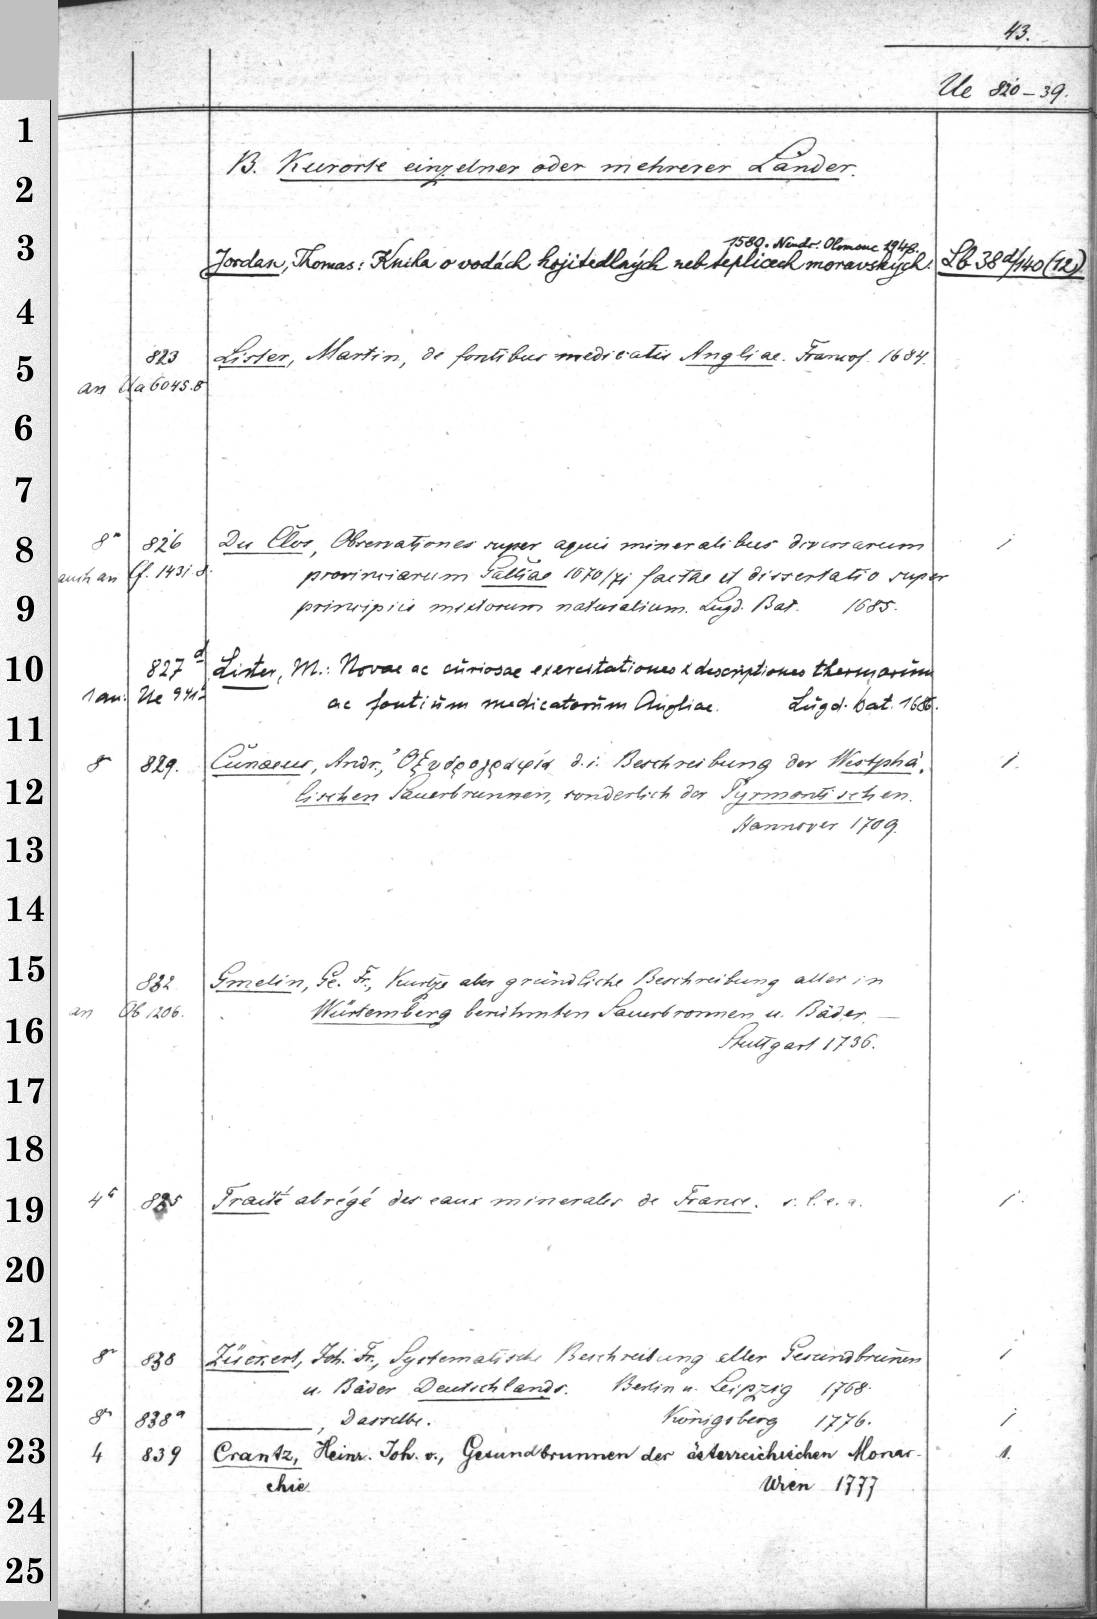 43.
Ue 820-39.
1
2
B. Kurorte einzelner oder mehrerer Länder.
3
1580. Neudr. Olomouc 1948.
Jordan, Thomas: Kniha o vodách hojitedlných neb teplicech moravských. Lb 38d/140 (12)
4
823 Lister, Martin, de fontibus medicatis Angliae. Francof. 1684.
5
an Ua 6045.8
6
7
8° 826 Du Clos, Observationes super aquis mineralibus diversarum 1
8
auch an Cf. 1431.8. provinciarum Galliae 1670/71 factae et dissertatio super
9
principiis mixtorum naturalium. Lugd. Bat. 1685.
10
827 d Lister, M.: Novae ac curiosae exercitationes & descriptiones thermarum
1 an: Ue 941 ac fontium medicatorum Angliae. Lugd. bat. 1686.
11
8° 829. Cunaeus, Andr., Ὀξυδρογραφία d. i. Beschreibung der Westphä- 1.
12
lischen Sauerbrunnen, sonderlich der Pyrmontischen.
Hannover 1709.
13
14
15
832 Gmelin, Ge. Fr., Kurtze aber gründliche Beschreibung aller in
an Ob 1206. Würtemberg berühmten Sauerbronnen u. Bäder. —
16
Stuttgart 1736.
17
18
4° 835 Traité abrégé des eaux minerales de France. s. l. e. a. 1.
19
20
21
8° 838 Zückert, Joh. Fr., Systematische Beschreibung aller Gesundbrunnen 1
22
u. Bäder Deutschlands. Berlin u. Leipzig 1768.
8° 838a ———, Dasselbe. Königsberg 1776. 1
23
4 839 Crantz, Heinr. Joh. v., Gesundbrunnen der österreichischen Monar- 1.
chie Wien 1777
24
25